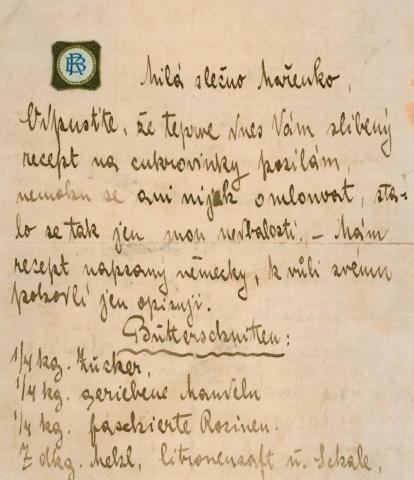 RB
Milá slečno Mařenko,
Odpusťte, že teprve dnes Vám slíbený
recept na cukrovinky posílám,
nemohu se ani nijak omlouvat, sta-
lo se tak jen mou nedbalostí. – Mám
recept napsaný německy, k vůli svému
pohodlí jen opisuji.
Butterschnitten:
1/4 kg. Zucker,
1/4 kg. geriebene Mandeln
1/4 kg. faschierte Rosinen.
7 dkg. Mehl, Citronensaft u. Schale,